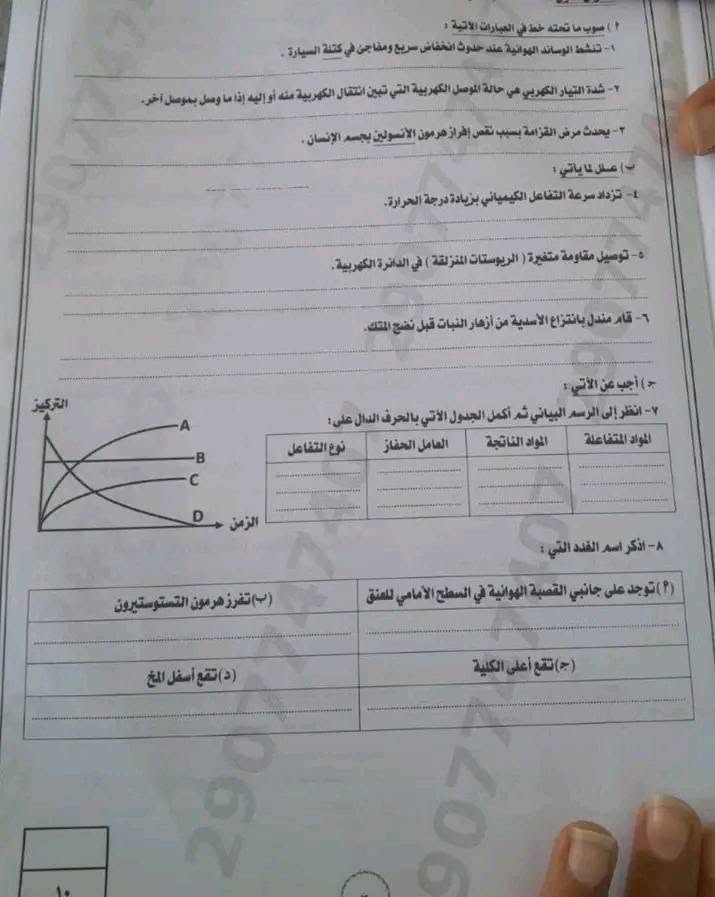 ٢) صوب ما تحته خط في العبارات الآتية :
١- تنشط الوسائد الهوائية عند حدوث انخفاض سريع ومفاجئ في كتلة السيارة .
٢- شدة التيار الكهربي هي حالة الموصل الكهربية التي تبين انتقال الكهربية منه أو إليه إذا ما وصل بموصل آخر.
٣- يحدث مرض القزامة بسبب نقص إفراز هرمون الأنسولين بجسم الإنسان .
ب) علل لما يأتي :
٤- تزداد سرعة التفاعل الكيميائي بزيادة درجة الحرارة.
٥- توصيل مقاومة متغيرة ( الريوستات المنزلقة ) في الدائرة الكهربية .
٦- قام مندل بانتزاع الأسدية من أزهار النبات قبل نضج المتك.
ج) أجب عن الآتي :
٧- انظر إلى الرسم البياني ثم أكمل الجدول الآتي بالحرف الدال على :
المواد المتفاعلة المواد الناتجة العامل الحفاز نوع التفاعل
التركيز
A
B
C
D
الزمن
٨- اذكر اسم الغدد التي :
(٢) توجد على جانبي القصبة الهوائية في السطح الأمامي للعنق (ب) تفرز هرمون التستوستيرون
(ج) تقع أعلى الكلية (د) تقع أسفل المخ
١٠
29077474707